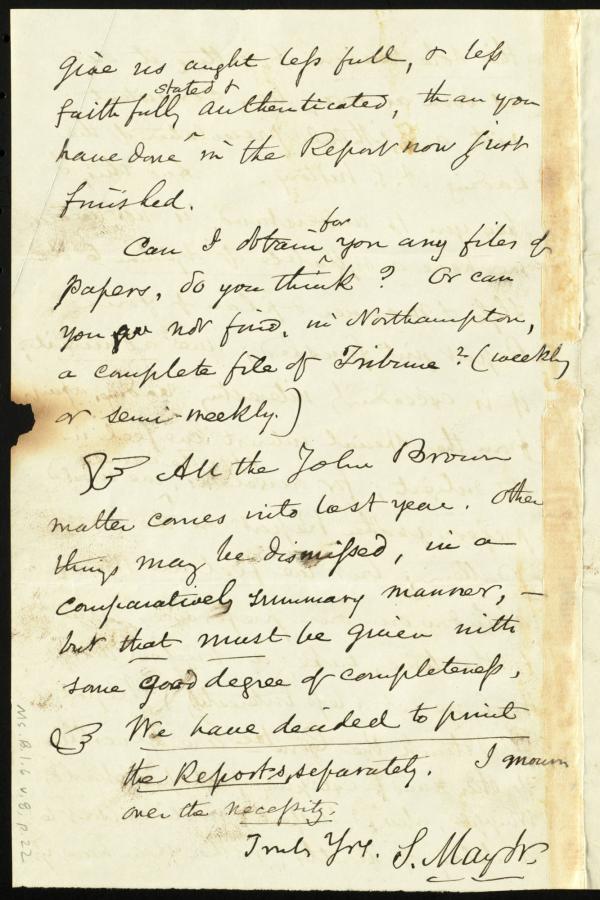 give us aught less full, & less
faithfully stated & authenticated, than you
have done in the Report now just
finished.
Can I obtain for you any files of
papers, do you think? Or can
you not find, in Northampton,
a complete file of Tribune? (weekly
or semi-weekly.)
☞ All the John Brown
matter comes into last year. Other
things may be dismissed, in a
comparatively summary manner, —
but that must be given with
some good degree of completeness.
☞ We have decided to print
the Reports separately. I mourn
over the necessity.
Truly Yrs. S. May Jr.
Ms. B. 1. 6 v. 8, p. 22